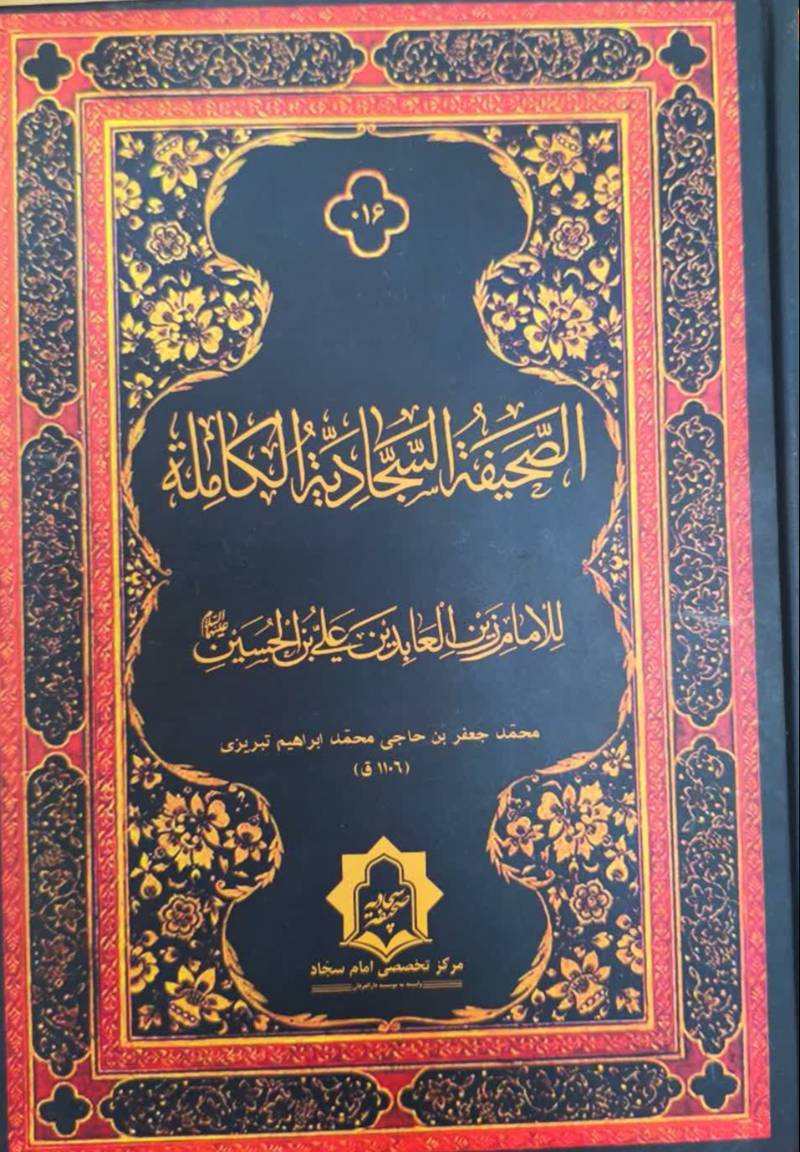 ۰۱۶
الصَّحيفَةُ السَّجَّادِيَّةُ الكامِلة
لِلإمامِ زَينِ العابِدينَ عَلِيِّ بْنِ الحُسَينِ عليهما السلام
محمّد جعفر بن حاجی محمّد ابراهیم تبریزی
(۱۱۰٦ ق)
صحیفه سجادیه
مرکز تخصصی امام سجّاد
وابسته به موسسه دارالعرفان